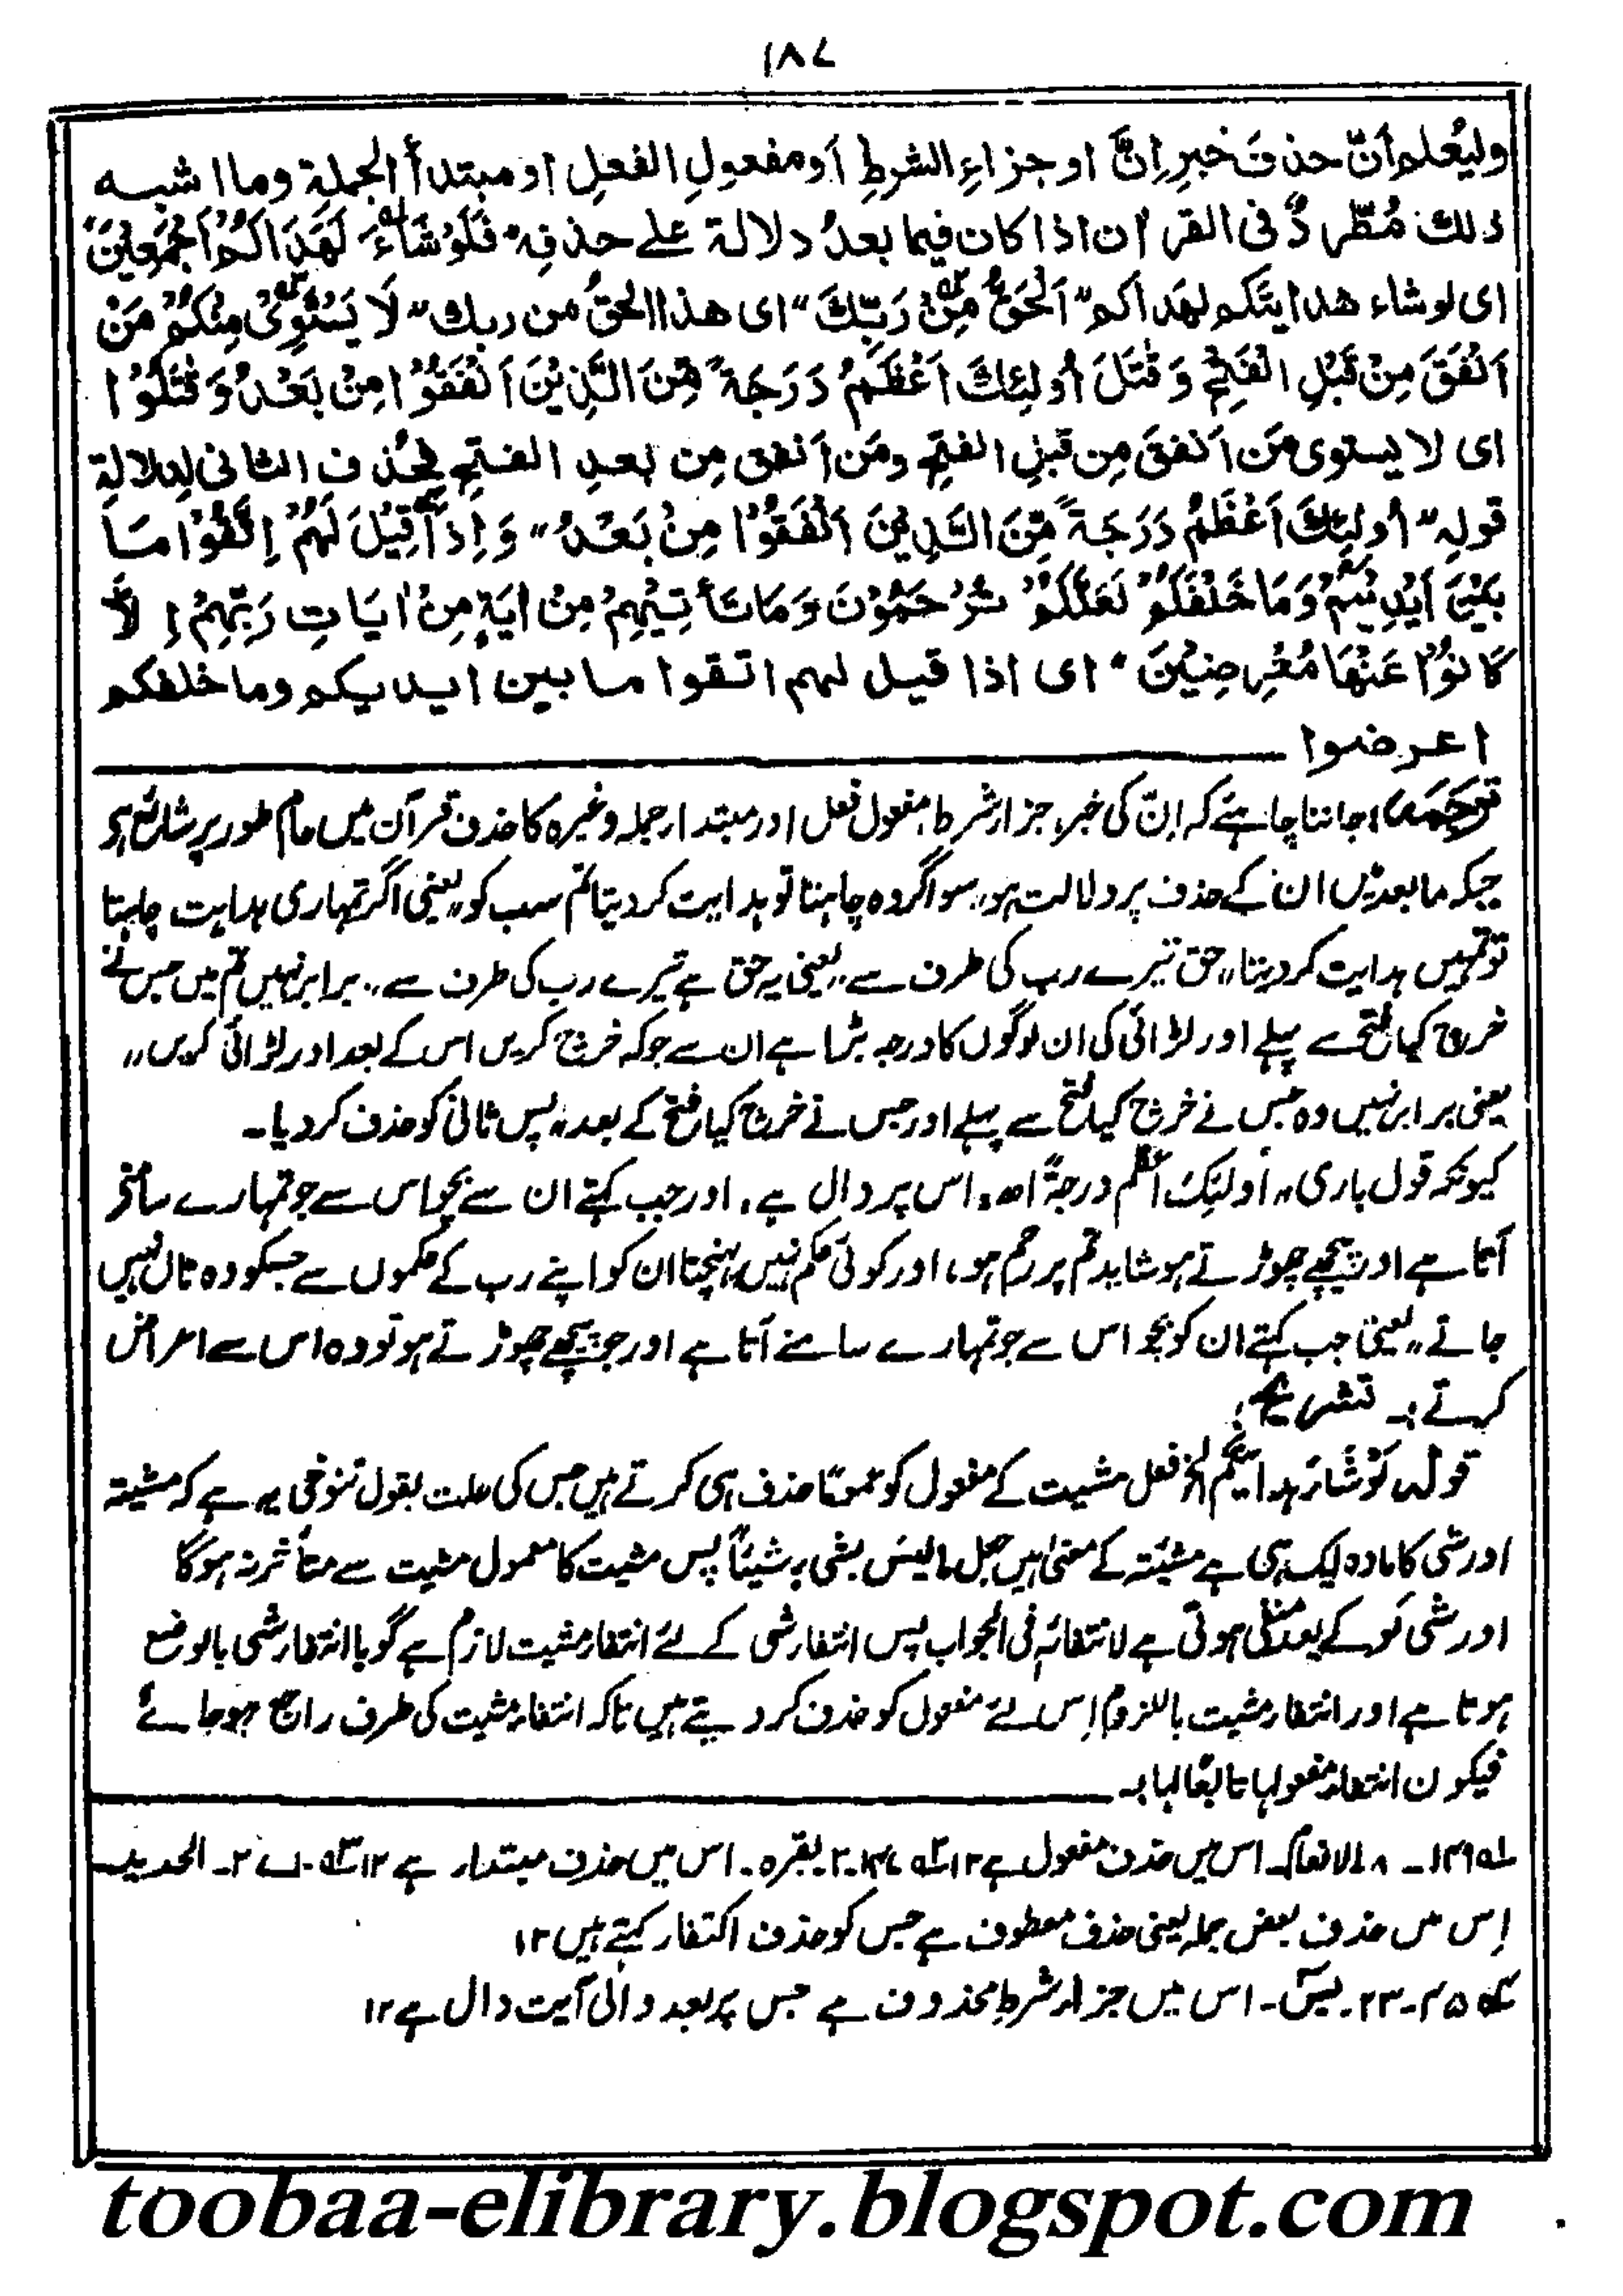 ۱۸۷
وليُعلم أنّ حذفَ خبرِ اِنَّ او جزاءِ الشرطِ أو مفعولِ الفعلِ او مبتدأ الجملةِ وما اشبه
ذلك مُطّردٌ فى القرأن اذا كان فيما بعدُ دلالة على حذفِه "فَلَوْ شَاءَ لَهَدَاكُمْ اَجْمَعِيْنَ"
اى لو شاء هدايتكم لهداكم "اَلْحَقُّ مِنْ رَبِّكَ" اى هذا الحقُ من ربك "لَا يَسْتَوِىْ مِنْكُمْ مَنْ
اَنْفَقَ مِنْ قَبْلِ الْفَتْحِ وَقٰتَلَ أُولٰئِكَ اَعْظَمُ دَرَجَةً مِّنَ الَّذِيْنَ اَنْفَقُوْا مِنْ بَعْدُ وَقٰتَلُوْا
اى لا يستوى مَن اَنفقَ مِن قبلِ الفتحِ ومَن اَنفق مِن بعدِ الفتحِ فحُذف الثانى لدلالة
قولِه "أُولٰئِكَ اَعْظَمُ دَرَجَةً مِّنَ الَّذِيْنَ اَنْفَقُوْا مِنْ بَعْدُ" وَاِذَا قِيْلَ لَهُمُ اتَّقُوْا مَا
بَيْنَ اَيْدِيْكُمْ وَمَا خَلْفَكُمْ لَعَلَّكُمْ تُرْحَمُوْنَ وَمَا تَأْتِيْهِمْ مِنْ اٰيَةٍ مِنْ اٰيَاتِ رَبِّهِمْ اِلَّا
كَانُوْا عَنْهَا مُعْرِضِيْنَ" اى اذا قيل لهم اتقوا ما بين ايديكم وما خلفكم
اعرضوا
ترجمہ: جاننا چاہئے کہ اِنّ کی خبر، جزارشرط، مفعول فعل اور مبتدا رجملہ وغیرہ کا حذف قرآن میں عام طور پر شائع ہے
جبکہ مابعد میں ان کے حذف پر دلالت ہو، سو اگر وہ چاہتا تو ہدایت کر دیتا تم سب کو، یعنی اگر تمہاری ہدایت چاہتا
تو تمہیں ہدایت کر دیتا، حق تیرے رب کی طرف سے، یعنی یہ حق ہے تیرے رب کی طرف سے، برابر نہیں تم میں جس نے
خرچ کیا فتح سے پہلے اور لڑائی کی ان لوگوں کا درجہ بڑا ہے ان سے جو کہ خرچ کریں اس کے بعد اور لڑائی کریں،،
یعنی برابر نہیں وہ جس نے خرچ کیا فتح سے پہلے اور جس نے خرچ کیا فتح کے بعد، پس ثانی کو حذف کر دیا۔
کیونکہ قول باری،، اُولٰئِکَ اعظم درجۃً اھ، اس پر دال ہے، اور جب کہئے ان سے بچو اس سے جو تمہارے سامنے
آتا ہے اور پیچھے چھوڑتے ہو شاید تم پر رحم ہو، اور کوئی حکم نہیں پہنچتا ان کو اپنے رب کے حکموں سے جسکو وہ ٹال نہیں
جاتے،، یعنی جب کہئے ان کو بچو اس سے جو تمہارے سامنے آتا ہے اور جو پیچھے چھوڑتے ہو تو وہ اس سے اعراض
کرتے :۔ تشریح :
قولہ لَوْ شَاءَ ہدایتکم الخ فعل مشیت کے مفعول کو عموماً حذف ہی کرتے ہیں جس کی علت بقول تنوخی یہ ہے کہ مشیتہ
اور شی کا مادہ ایک ہی ہے مشیئتہ کے معنیٰ ہیں جعل مالیس بشی ء شیئاً پس مشیت کا معمول مشیت سے متأثر نہ ہوگا
اور شی لو کے بعد منتفی ہوتی ہے لانتفائہ فی الجواب پس انتفارشی کے لئے انتفار مشیت لازم ہے گویا انتفارشی بالوضع
ہوتا ہے اور انتفار مشیت باللزوم اِس لئے مفعول کو حذف کر دیتے ہیں تاکہ انتفار مشیت کی طرف راجع ہوجائے
فیکون انتفاء مفعولہا تابعًا لہا :۔
لہ ۱۴۹۔ ۸ الانعام۔ اس میں حذف مفعول ہے ۱۲ ۱۴۷۔ ۲۔ بقرہ۔ اس میں حذف مبتدار ہے ۱۲ ۱۰۔ ۲۷۔ الحدید
اِس میں حذف بعض جملہ یعنی حذف معطوف ہے جس کو حذف اکتفار کہتے ہیں ۱۲
۴۵۔ ۲۳۔ یٰسٓ۔ اس میں جزار شرط محذوف ہے جس پر بعد والی آیت دال ہے ۱۲
toobaa-elibrary.blogspot.com